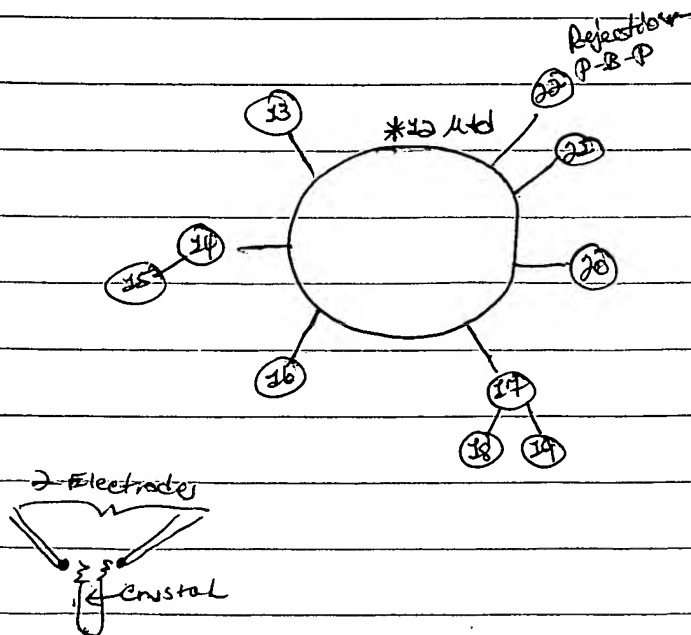 Rejection
P-B-P
22
13
*12 Mtd
21
14
15
20
16
17
18
19
2 Electrodes
Crystal